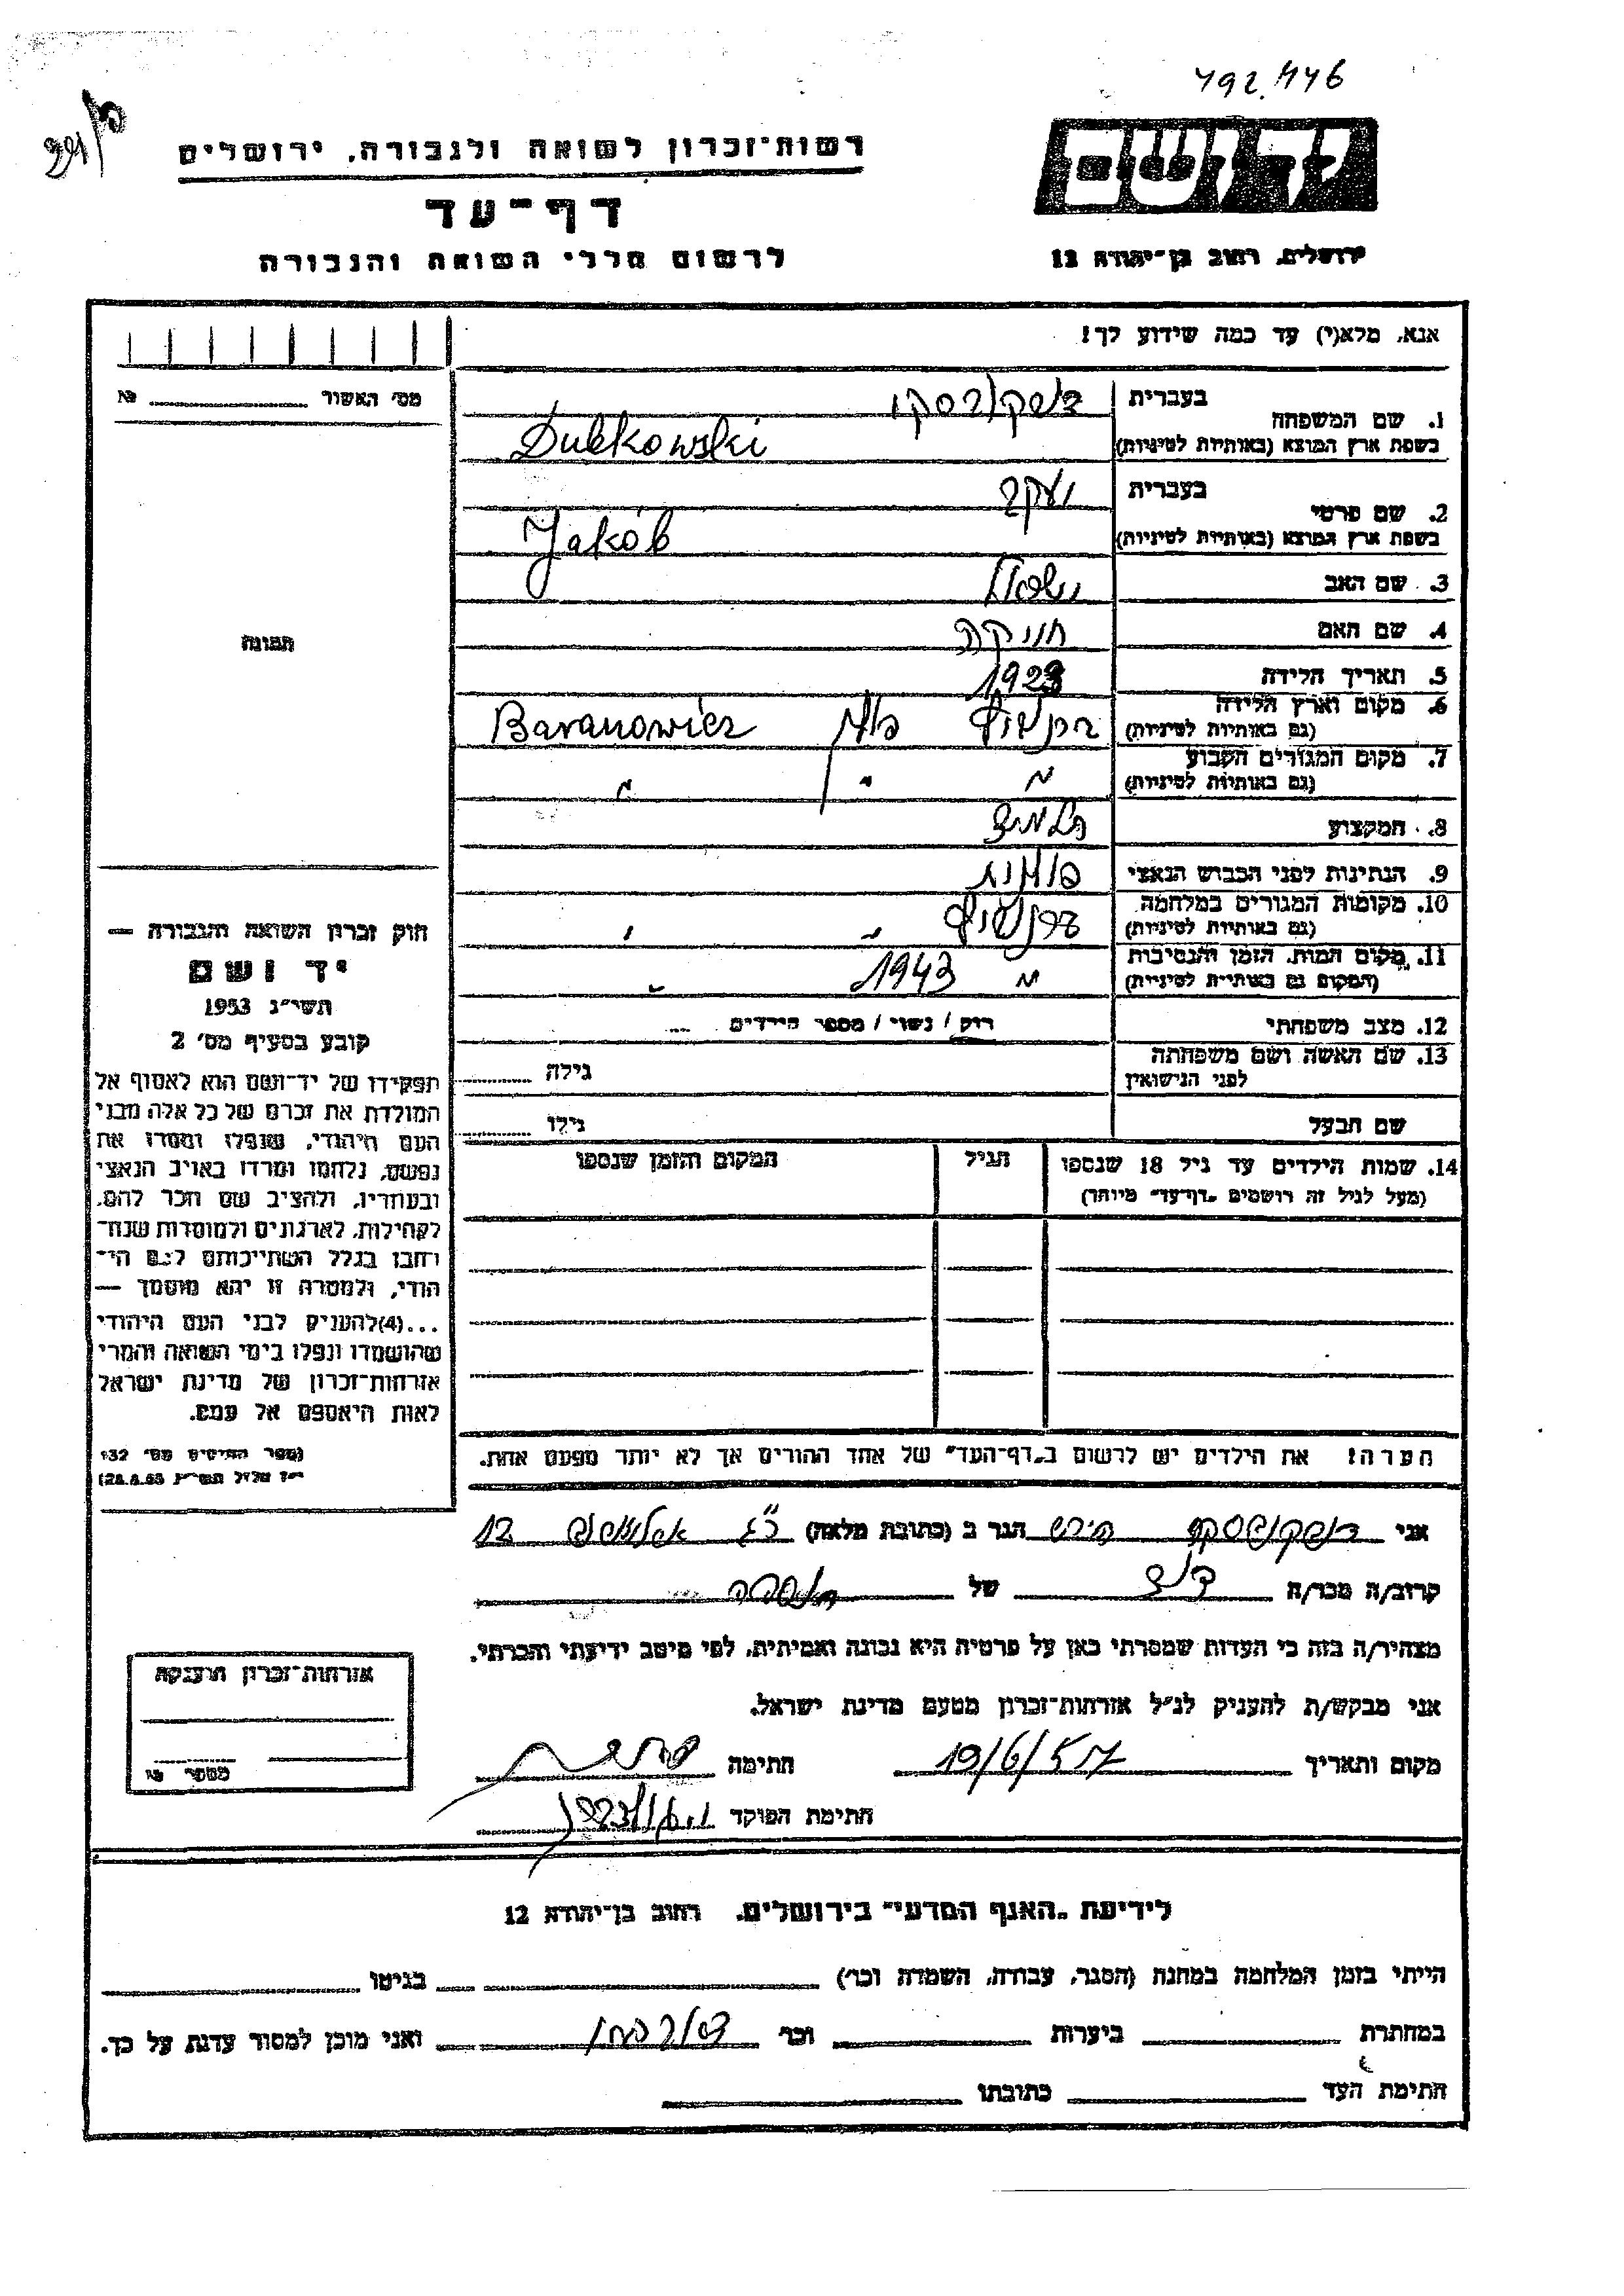 492.446
רשות־זכרון לשואה ולגבורה, ירושלים
דף־עד
לרשום חללי השואה והגבורה
יד ושם
ירושלים, רחוב בן־יהודה 12
אנא, מלא(י) עד כמה שידוע לך!
מס׳ האשור №
1. שם המשפחה
בעברית
בשפת ארץ המוצא (באותיות לטיניות) Dubkowski
2. שם פרטי
בעברית יעקב
בשפת ארץ המוצא (באותיות לטיניות) Jakób
3. שם האב
4. שם האם
5. תאריך הלידה 1923
6. מקום וארץ הלידה
(גם באותיות לטיניות) ברנוביץ Baranowicz
7. מקום המגורים הקבוע
(גם באותיות לטיניות) " " "
8. המקצוע
9. הנתינות לפני הכבוש הנאצי פולנית
10. מקומות המגורים במלחמה
(גם באותיות לטיניות) ברנוביץ " "
11. מקום המות, הזמן והנסיבות
(המקום גם באותיות לטיניות) " 1943 "
12. מצב משפחתי רוק / נשוי / מספר הילדים ...
13. שם האשה ושם משפחתה
לפני הנישואין גילה
שם הבעל גילו
14. שמות הילדים עד גיל 18 שנספו
(מעל לגיל זה רושמים „דף־עד״ מיוחד)
הגיל
המקום והזמן שנספו
הערה! את הילדים יש לרשום ב„דף־העד״ של אחד ההורים אך לא יותר מפעם אחת.
תמונה
חוק זכרון השואה והגבורה —
יד ושם
תשי״ג 1953
קובע בסעיף מס׳ 2
תפקידו של יד־ושם הוא לאסוף אל
המולדת את זכרם של כל אלה מבני
העם היהודי, שנפלו ומסרו את
נפשם, נלחמו ומרדו באויב הנאצי
ובעוזריו, ולהציב שם וזכר להם,
לקהילות, לארגונים ולמוסדות שנח־
רבו בגלל השתייכותם לעם הי־
הודי, ולמטרה זו יהא מוסמך —
...(4) להעניק לבני העם היהודי
שהושמדו ונפלו בימי השואה והמרי
אזרחות־זכרון של מדינת ישראל
לאות היאספם אל עמם.
(ספר החוקים מס׳ 132
אני הגר ב (כתובת מלאה) 12
קרוב/ה מכר/ה של
מצהיר/ה בזה כי העדות שמסרתי כאן על פרטיה היא נכונה ואמיתית, לפי מיטב ידיעתי והכרתי.
אני מבקש/ת להעניק לנ״ל אזרחות־זכרון מטעם מדינת ישראל.
מקום ותאריך 19/6/57 חתימה
חתימת הפוקד
אזרחות־זכרון הוענקה
מספר
לידיעת „האגף המדעי״ בירושלים, רחוב בן־יהודה 12
הייתי בזמן המלחמה במחנה (הסגר, עבודה, השמדה וכו׳) בגיטו
במחתרת ביערות וכו׳ ואני מוכן למסור עדות על כך.
חתימת העד כתובתו